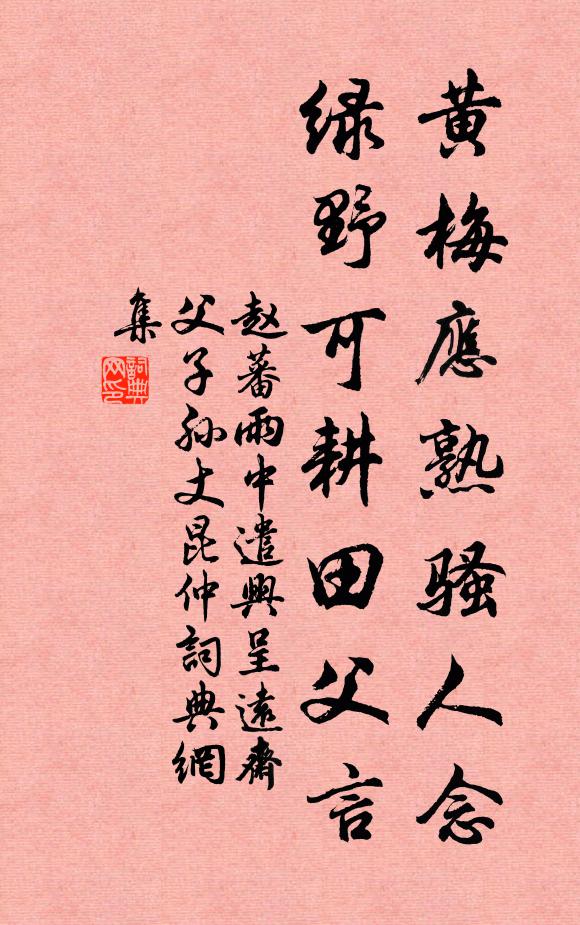 黄梅應熟騷人念
绿野可耕田父言
赵蕃雨中遣興呈遠齋
父子孙丈昆仲詞典網
集
詞典
网印